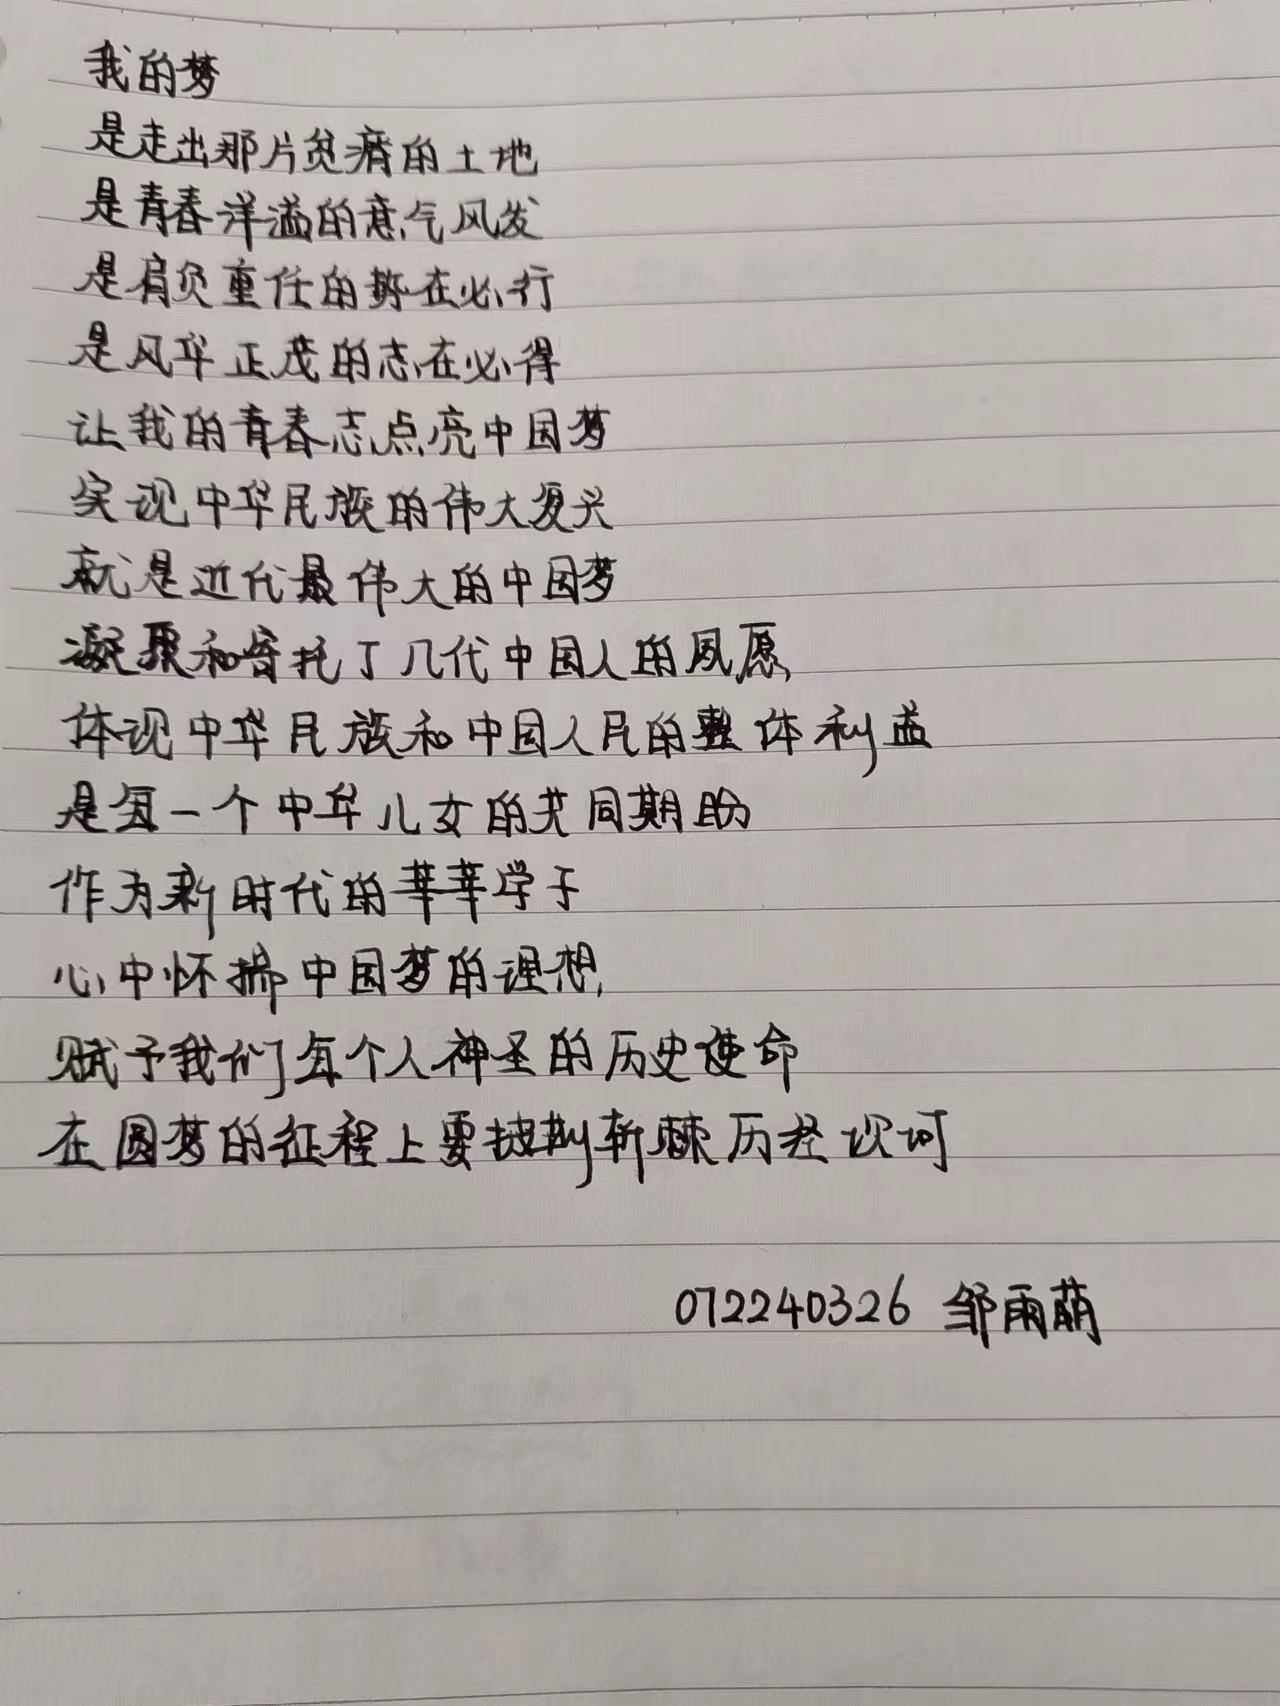 我的梦
是走出那片贫瘠的土地
是青春洋溢的意气风发
是肩负重任的势在必行
是风华正茂的志在必得
让我的青春志点亮中国梦
实现中华民族的伟大复兴
就是近代最伟大的中国梦
凝聚和寄托了几代中国人的夙愿,
体现中华民族和中国人民的整体利益
是每一个中华儿女的共同期盼
作为新时代的莘莘学子
心中怀揣中国梦的理想,
赋予我们每个人神圣的历史使命
在圆梦的征程上要披荆斩棘历经坎坷
072240326 邹雨萌